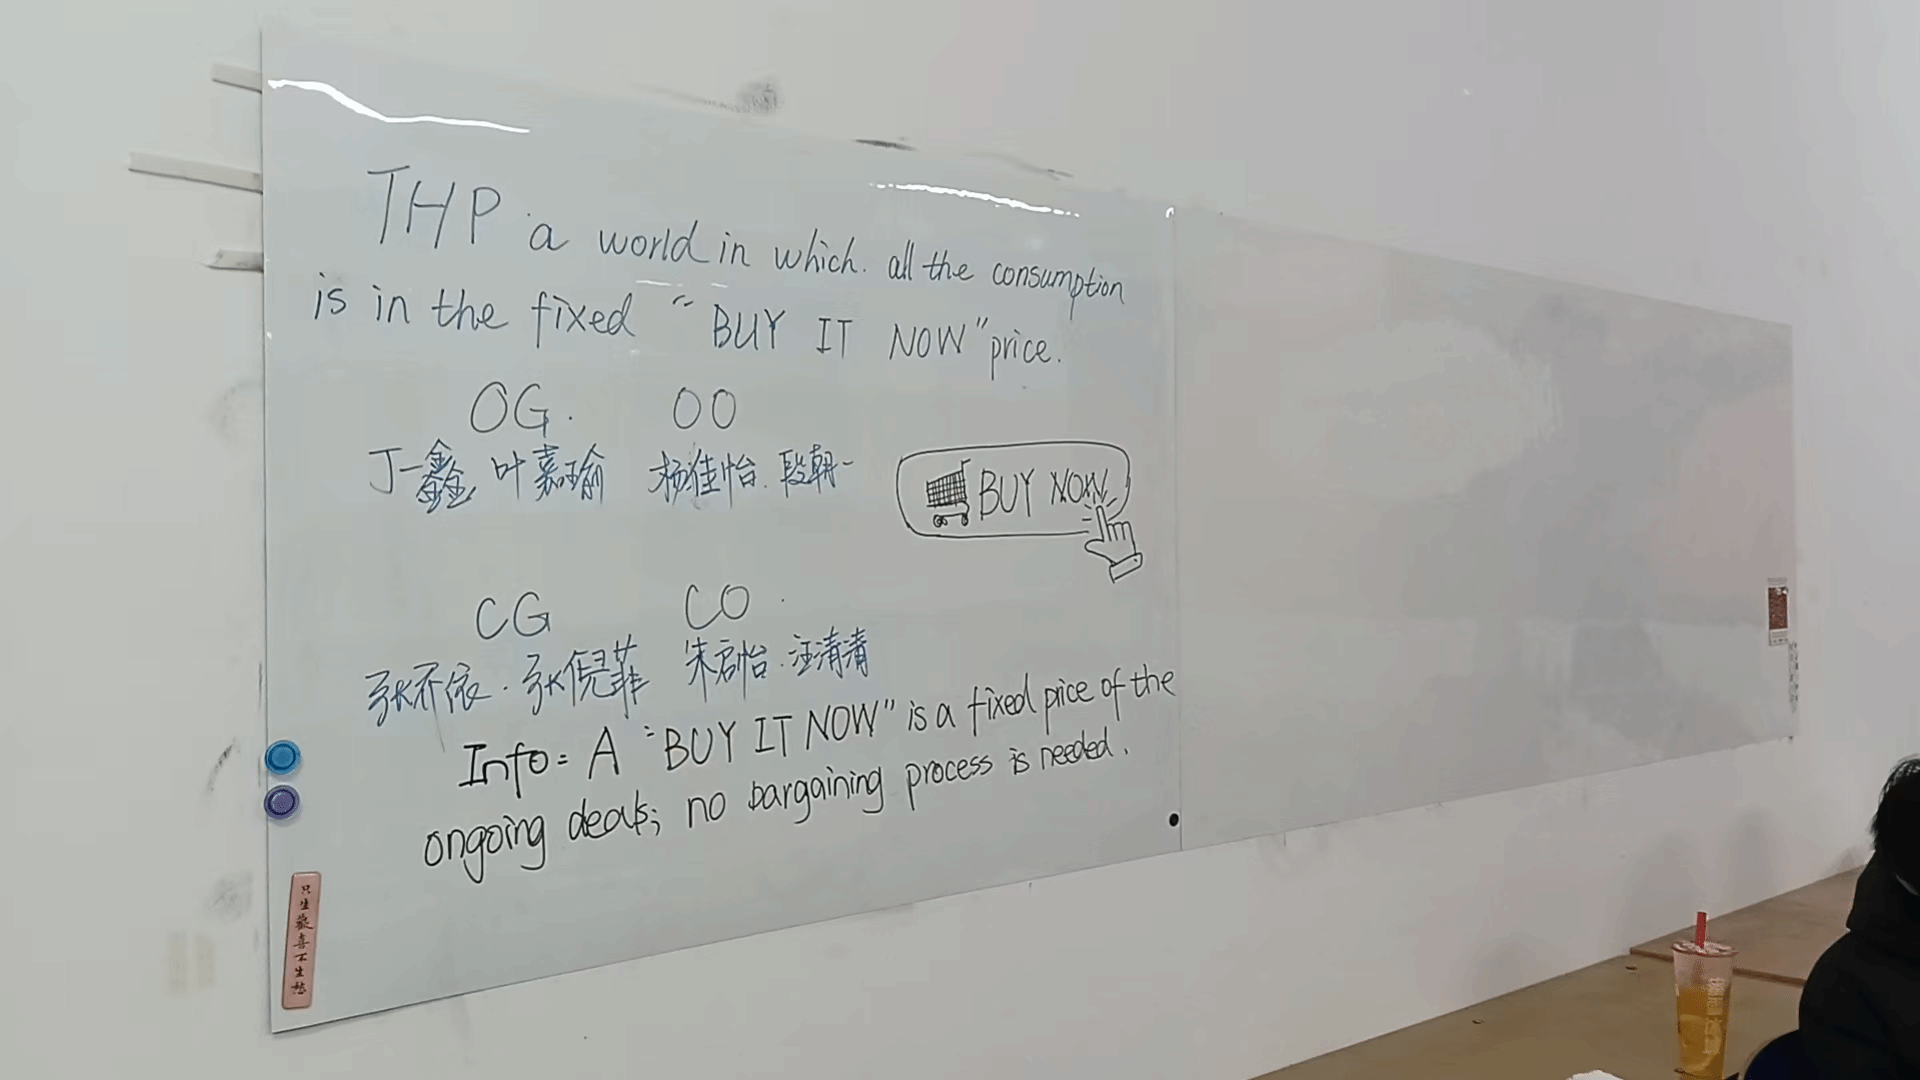 THP a world in which. all the consumption
is in the fixed "BUY IT NOW" price.
OG. OO
丁一鑫 叶嘉瑜 杨佳怡. 段朝一
BUY NOW
CG CO
张乔依. 张倪菲 朱启怡. 汪清清
Info: A "BUY IT NOW" is a fixed price of the
ongoing deals; no bargaining process is needed.
只生歡喜不生愁